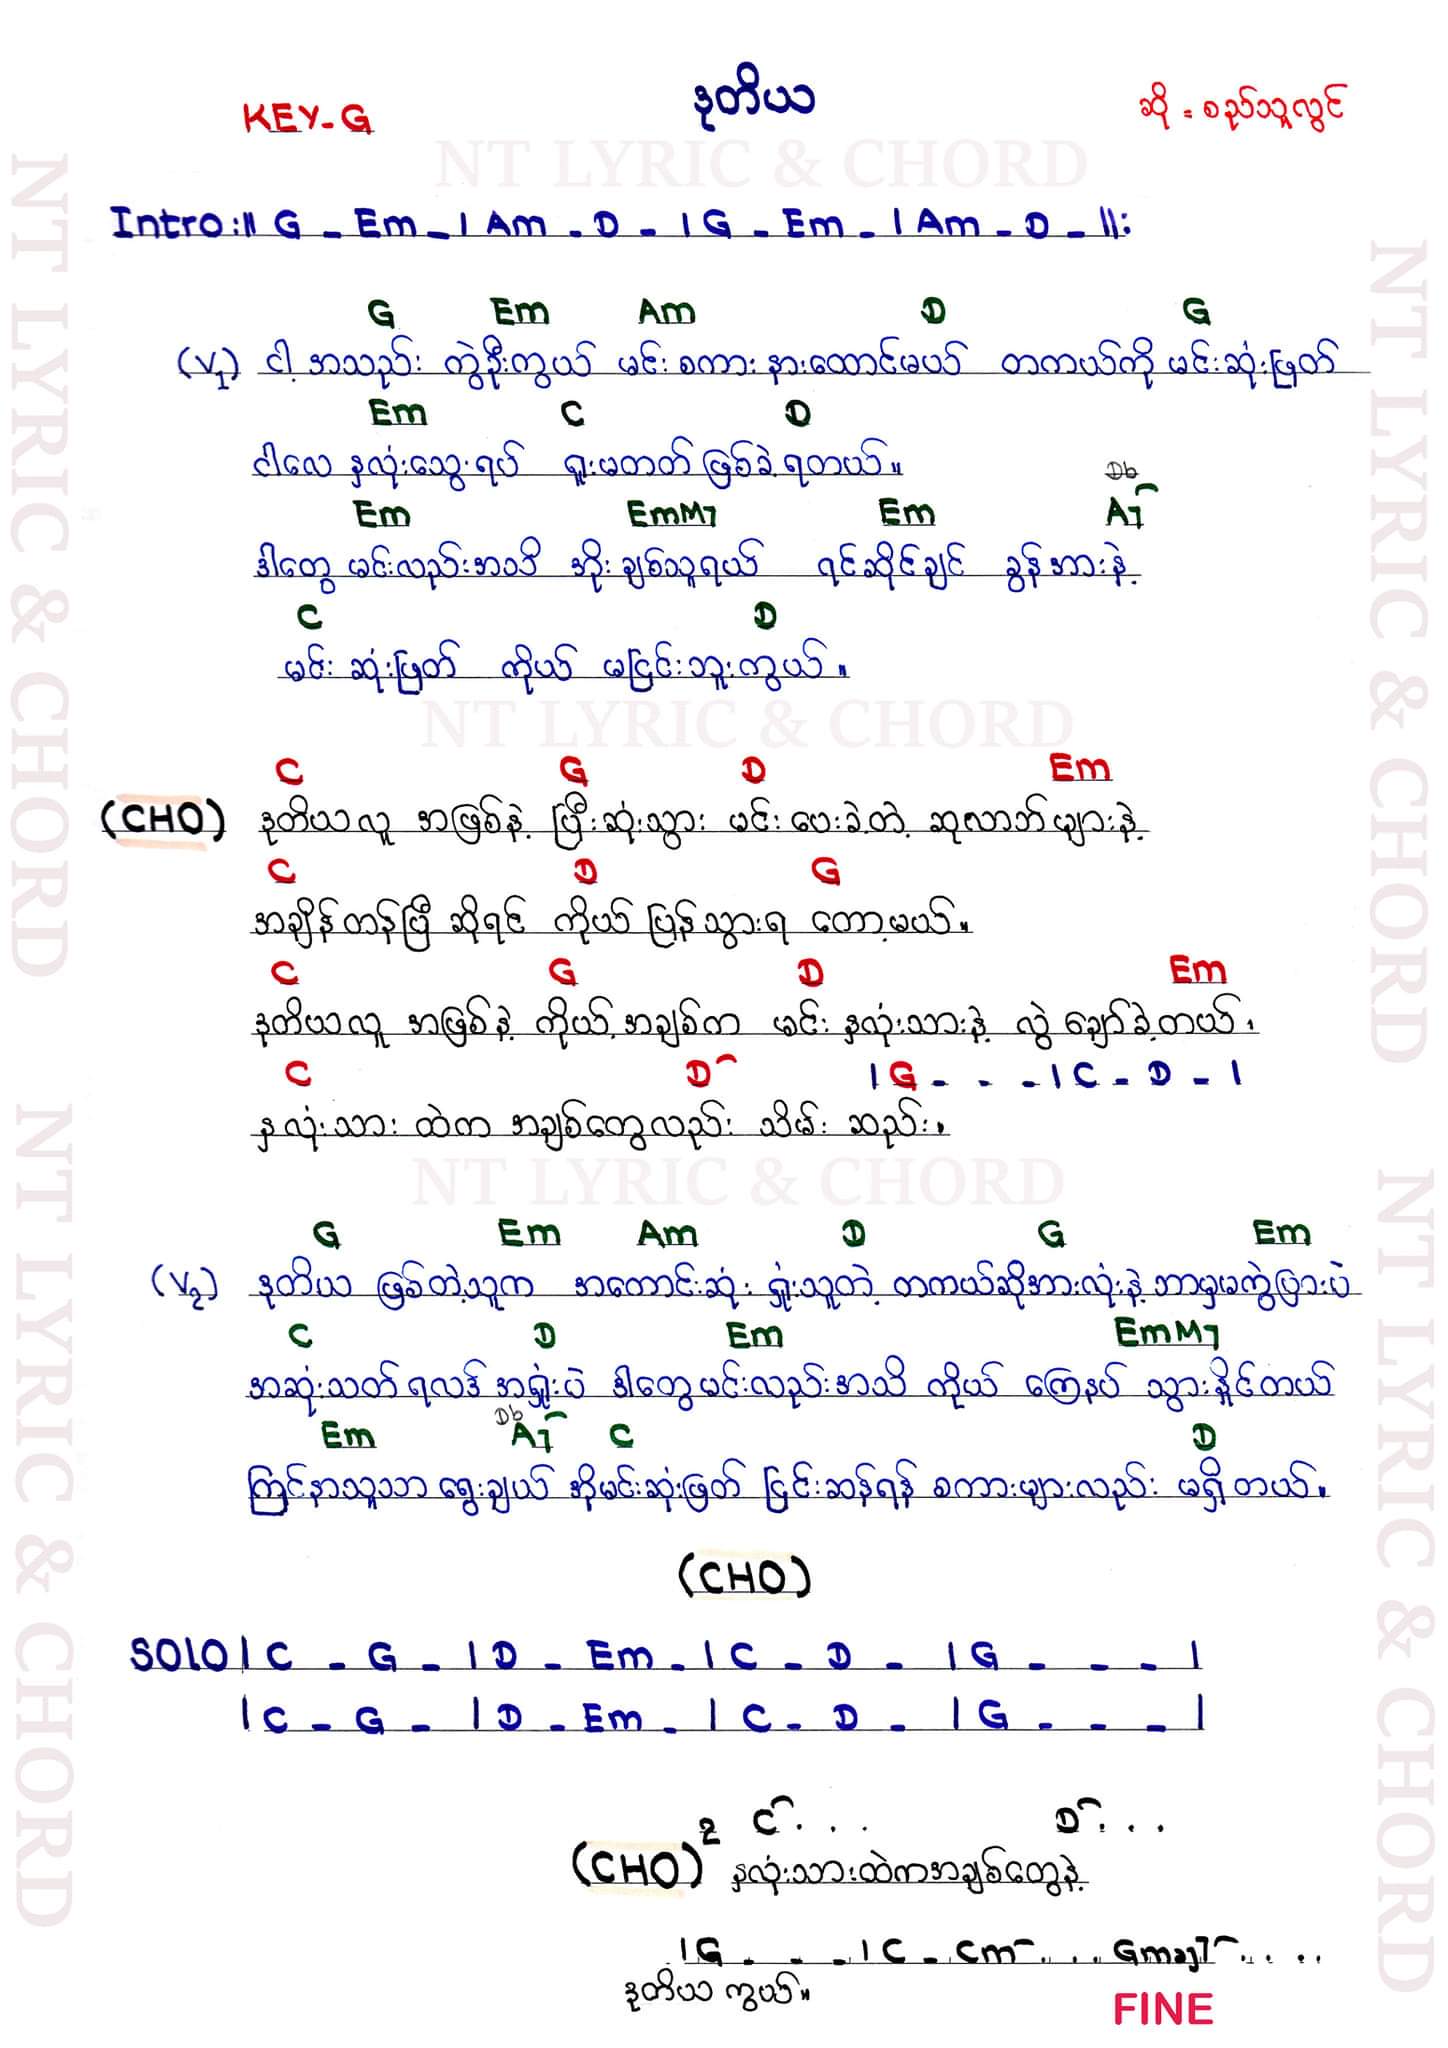 ဒုတိယ
KEY-G
ဆို = စည်သူလွင်
NT LYRIC & CHORD
Intro:|| G - Em - | Am - D - | G - Em - | Am - D - ||:
G Em Am D G
(V1) ငါ့ အသည်း ကွဲဦးကွယ် မင်း စကား နားထောင်မယ် တကယ်ကို မင်းဆုံးဖြတ်
Em C D
ငါလေ နှလုံးသွေးရပ် ရူးမတတ် ဖြစ်ခဲ့ရတယ်။
Db
Em EmM7 Em A7
ဒါတွေ မင်းလည်းအသိ အိုး ချစ်သူရယ် ရင်ဆိုင်ချင် ခွန်အားနဲ့
C D
မင်း ဆုံးဖြတ် ကိုယ် မငြင်းဘူးကွယ်။
NT LYRIC & CHORD
C G D Em
(CHO) ဒုတိယလူ အဖြစ်နဲ့ ပြီးဆုံးသွား မင်း ပေးခဲ့တဲ့ ဆုလာဘ်များနဲ့
C D G
အချိန်တန်ပြီ ဆိုရင် ကိုယ် ပြန်သွားရ တော့မယ်။
C G D Em
ဒုတိယလူ အဖြစ်နဲ့ ကိုယ့်အချစ်က မင်း နှလုံးသားနဲ့ လွဲ ချော်ခဲ့တယ်။
C D | G - - - | C - D - |
နှလုံးသား ထဲက အချစ်တွေလည်း သိမ်း ဆည်း။
NT LYRIC & CHORD
G Em Am D G Em
(V2) ဒုတိယ ဖြစ်တဲ့သူက အကောင်းဆုံး ရှုံးသူတဲ့ တကယ်ဆိုအားလုံးနဲ့ ဘာမှမကွဲပြားပဲ
C D Em EmM7
အဆုံးသတ် ရလဒ် အရှုံးပဲ ဒါတွေမင်းလည်းအသိ ကိုယ် ကြေနပ် သွားနိုင်တယ်
Db
Em A7 C D
ကြင်နာသူသာ ရွေးချယ် အိုမင်းဆုံးဖြတ် ငြင်းဆန်ရန် စကားများလည်း မရှိတယ်။
(CHO)
SOLO | C - G - | D - Em - | C - D - | G - - - |
| C - G - | D - Em - | C - D - | G - - - |
C . . . D . . .
(CHO)2 နှလုံးသားထဲကအချစ်တွေနဲ့
| G - - - | C - Cm . . . Gmaj7 . . . .
ဒုတိယ ကွယ်။
FINE
NT LYRIC & CHORD
NT LYRIC & CHORD
NT LYRIC & CHORD
NT LYRIC & CHORD